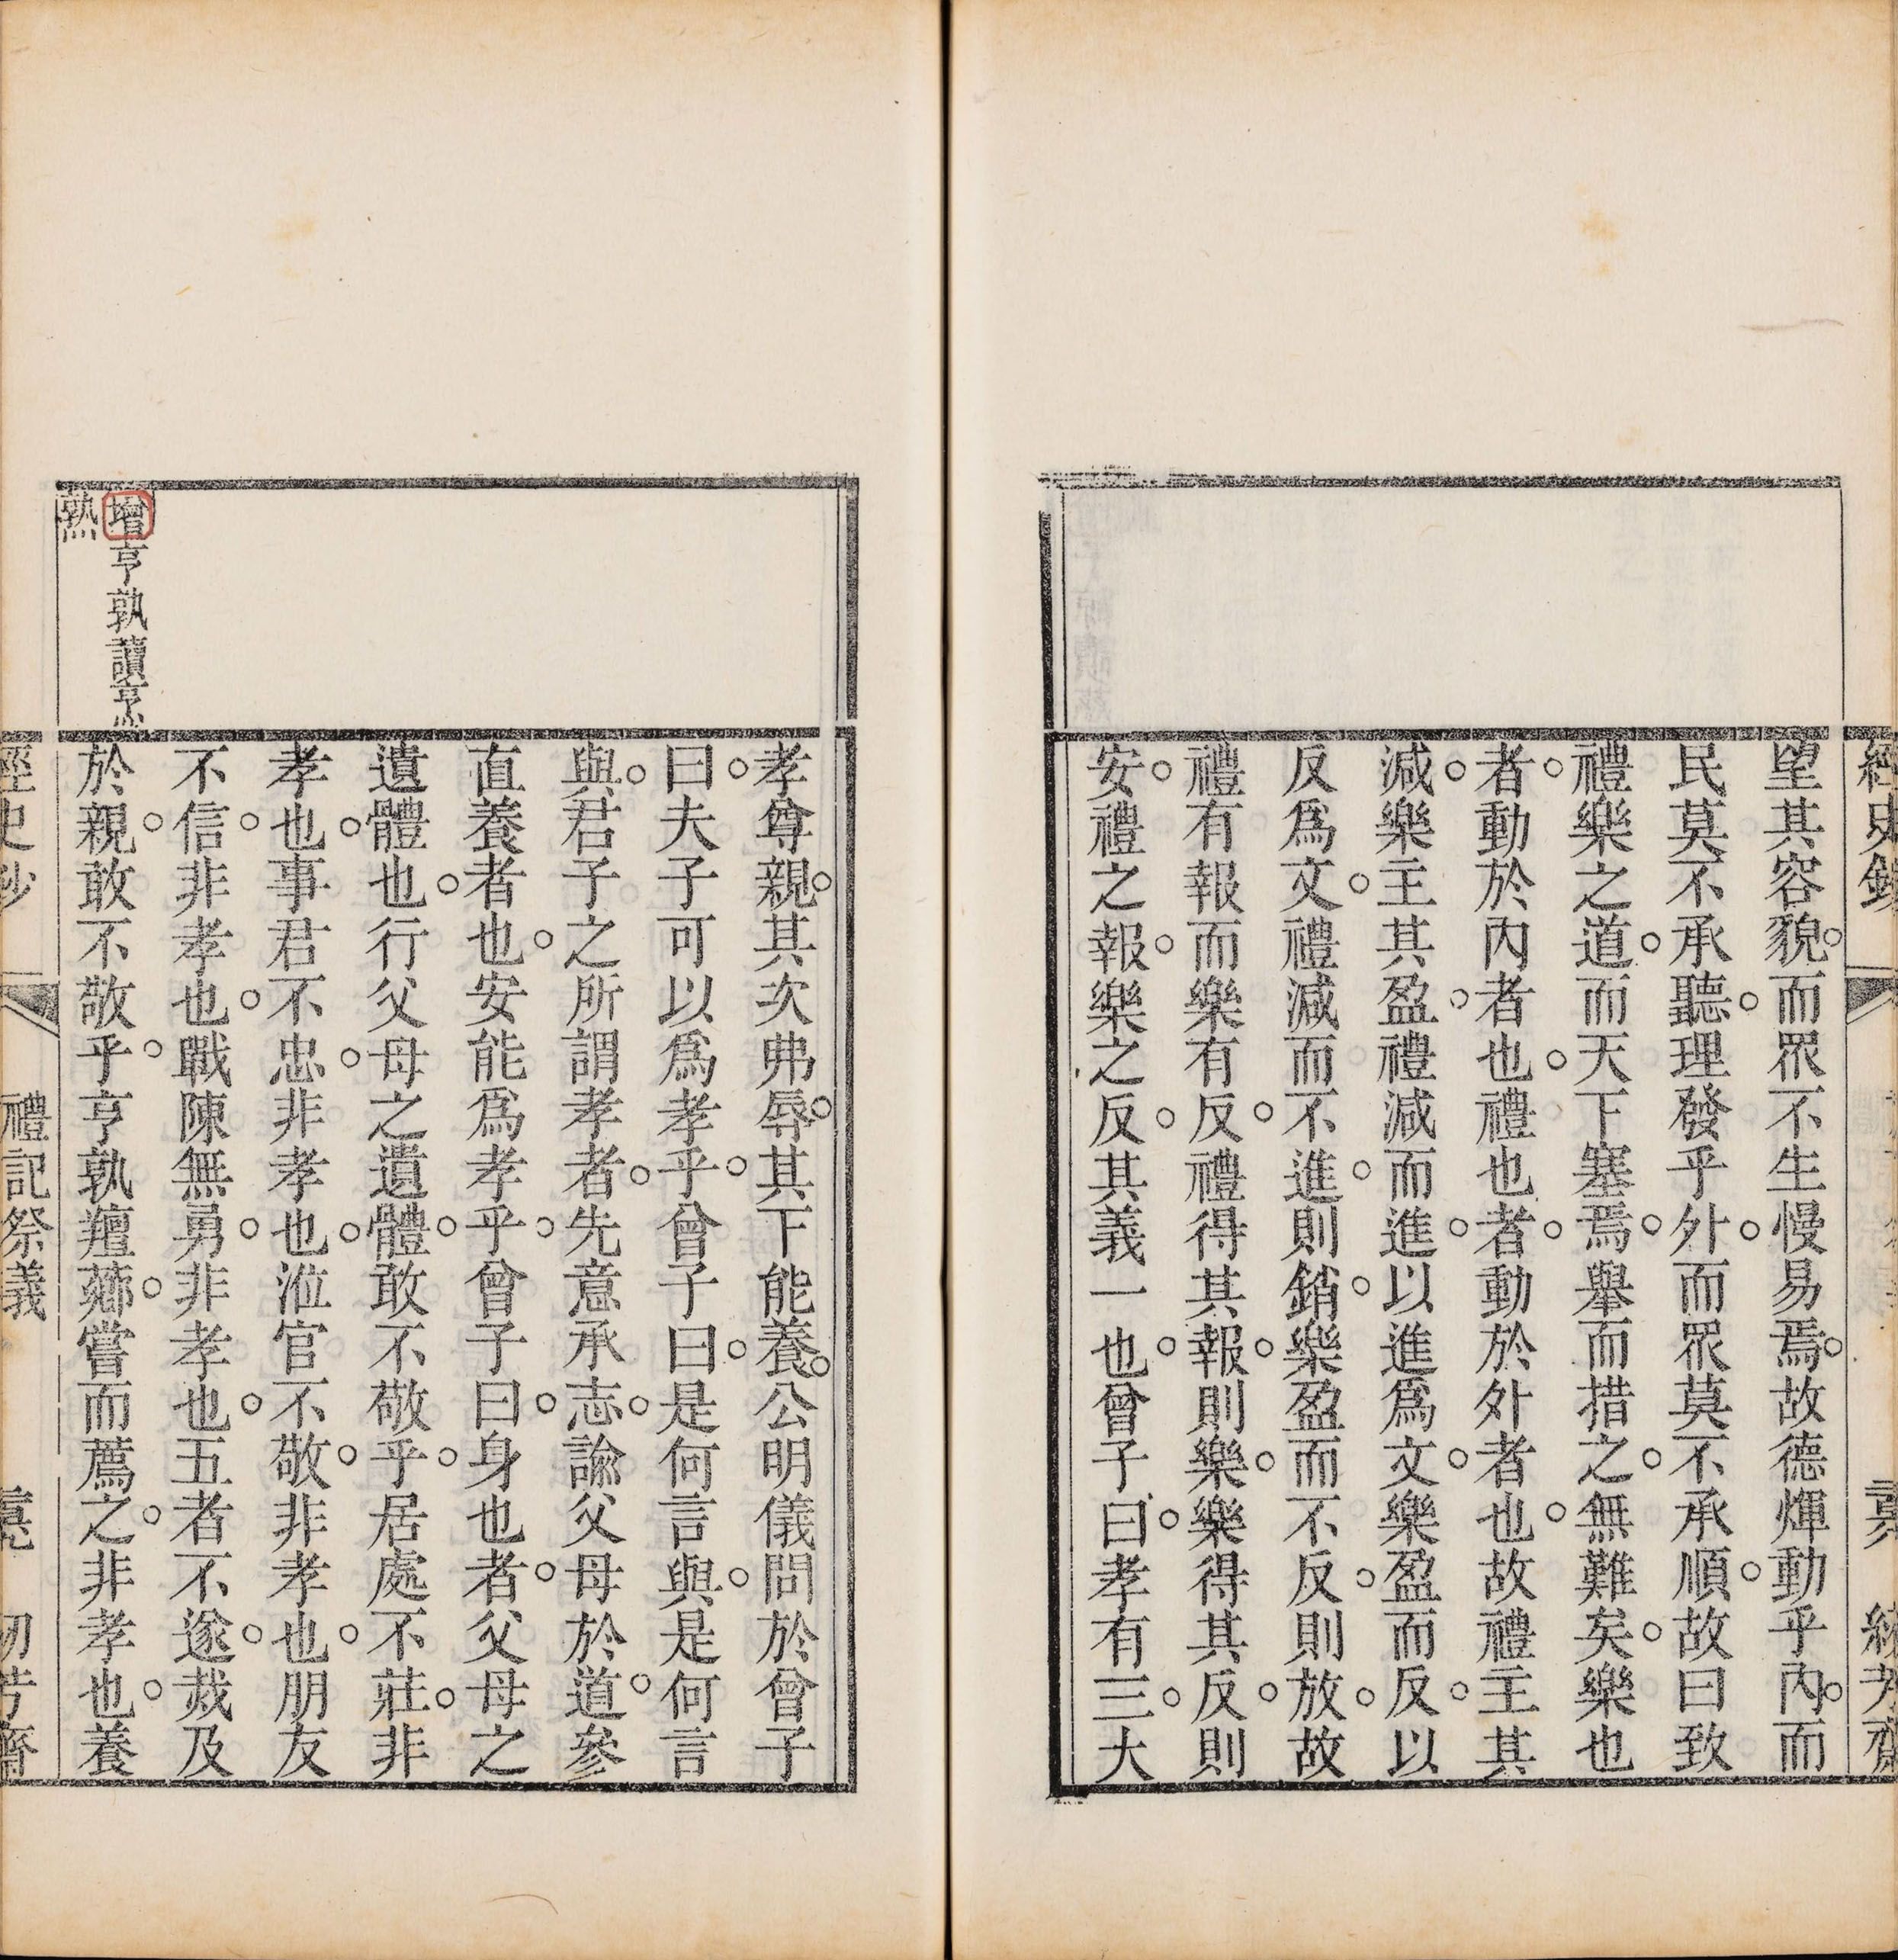 望其容貌。而眾不生慢易焉。故德煇動乎內。而
民莫不承聽。理發乎外。而眾莫不承順。故曰致
禮樂之道。而天下塞焉。舉而措之。無難矣。樂也
者。動於內者也。禮也者。動於外者也。故禮主其
減。樂主其盈。禮減而進。以進為文。樂盈而反。以
反為文。禮減而不進。則銷。樂盈而不反。則放。故
禮有報而樂有反。禮得其報。則樂。樂得其反。則
安。禮之報。樂之反。其義一也。曾子曰。孝有三。大
孝尊親。其次弗辱。其下能養。公明儀問於曾子
曰。夫子可以為孝乎。曾子曰。是何言與。是何言
與。君子之所謂孝者。先意承志。諭父母於道。參
直養者也。安能為孝乎。曾子曰。身也者。父母之
遺體也。行父母之遺體。敢不敬乎。居處不莊。非
孝也。事君不忠。非孝也。涖官不敬。非孝也。朋友
不信。非孝也。戰陳無勇。非孝也。五者不遂。烖及
於親。敢不敬乎。亨孰羶薌。嘗而薦之。非孝也。養
增亨孰讀烹
熟
經史鈔
禮記祭義